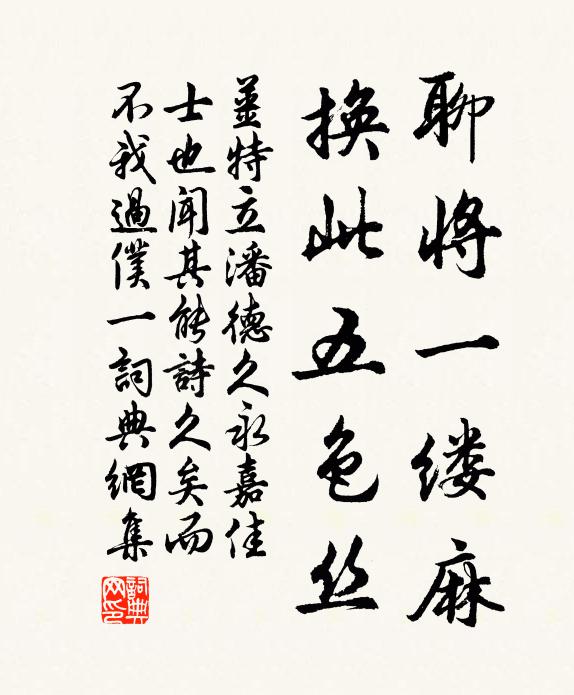 聊將一缕麻
換此五色丝
薑特立潘德久永嘉佳
士也聞其能詩久矣而
不我過僕一詞典網集
詞典网印